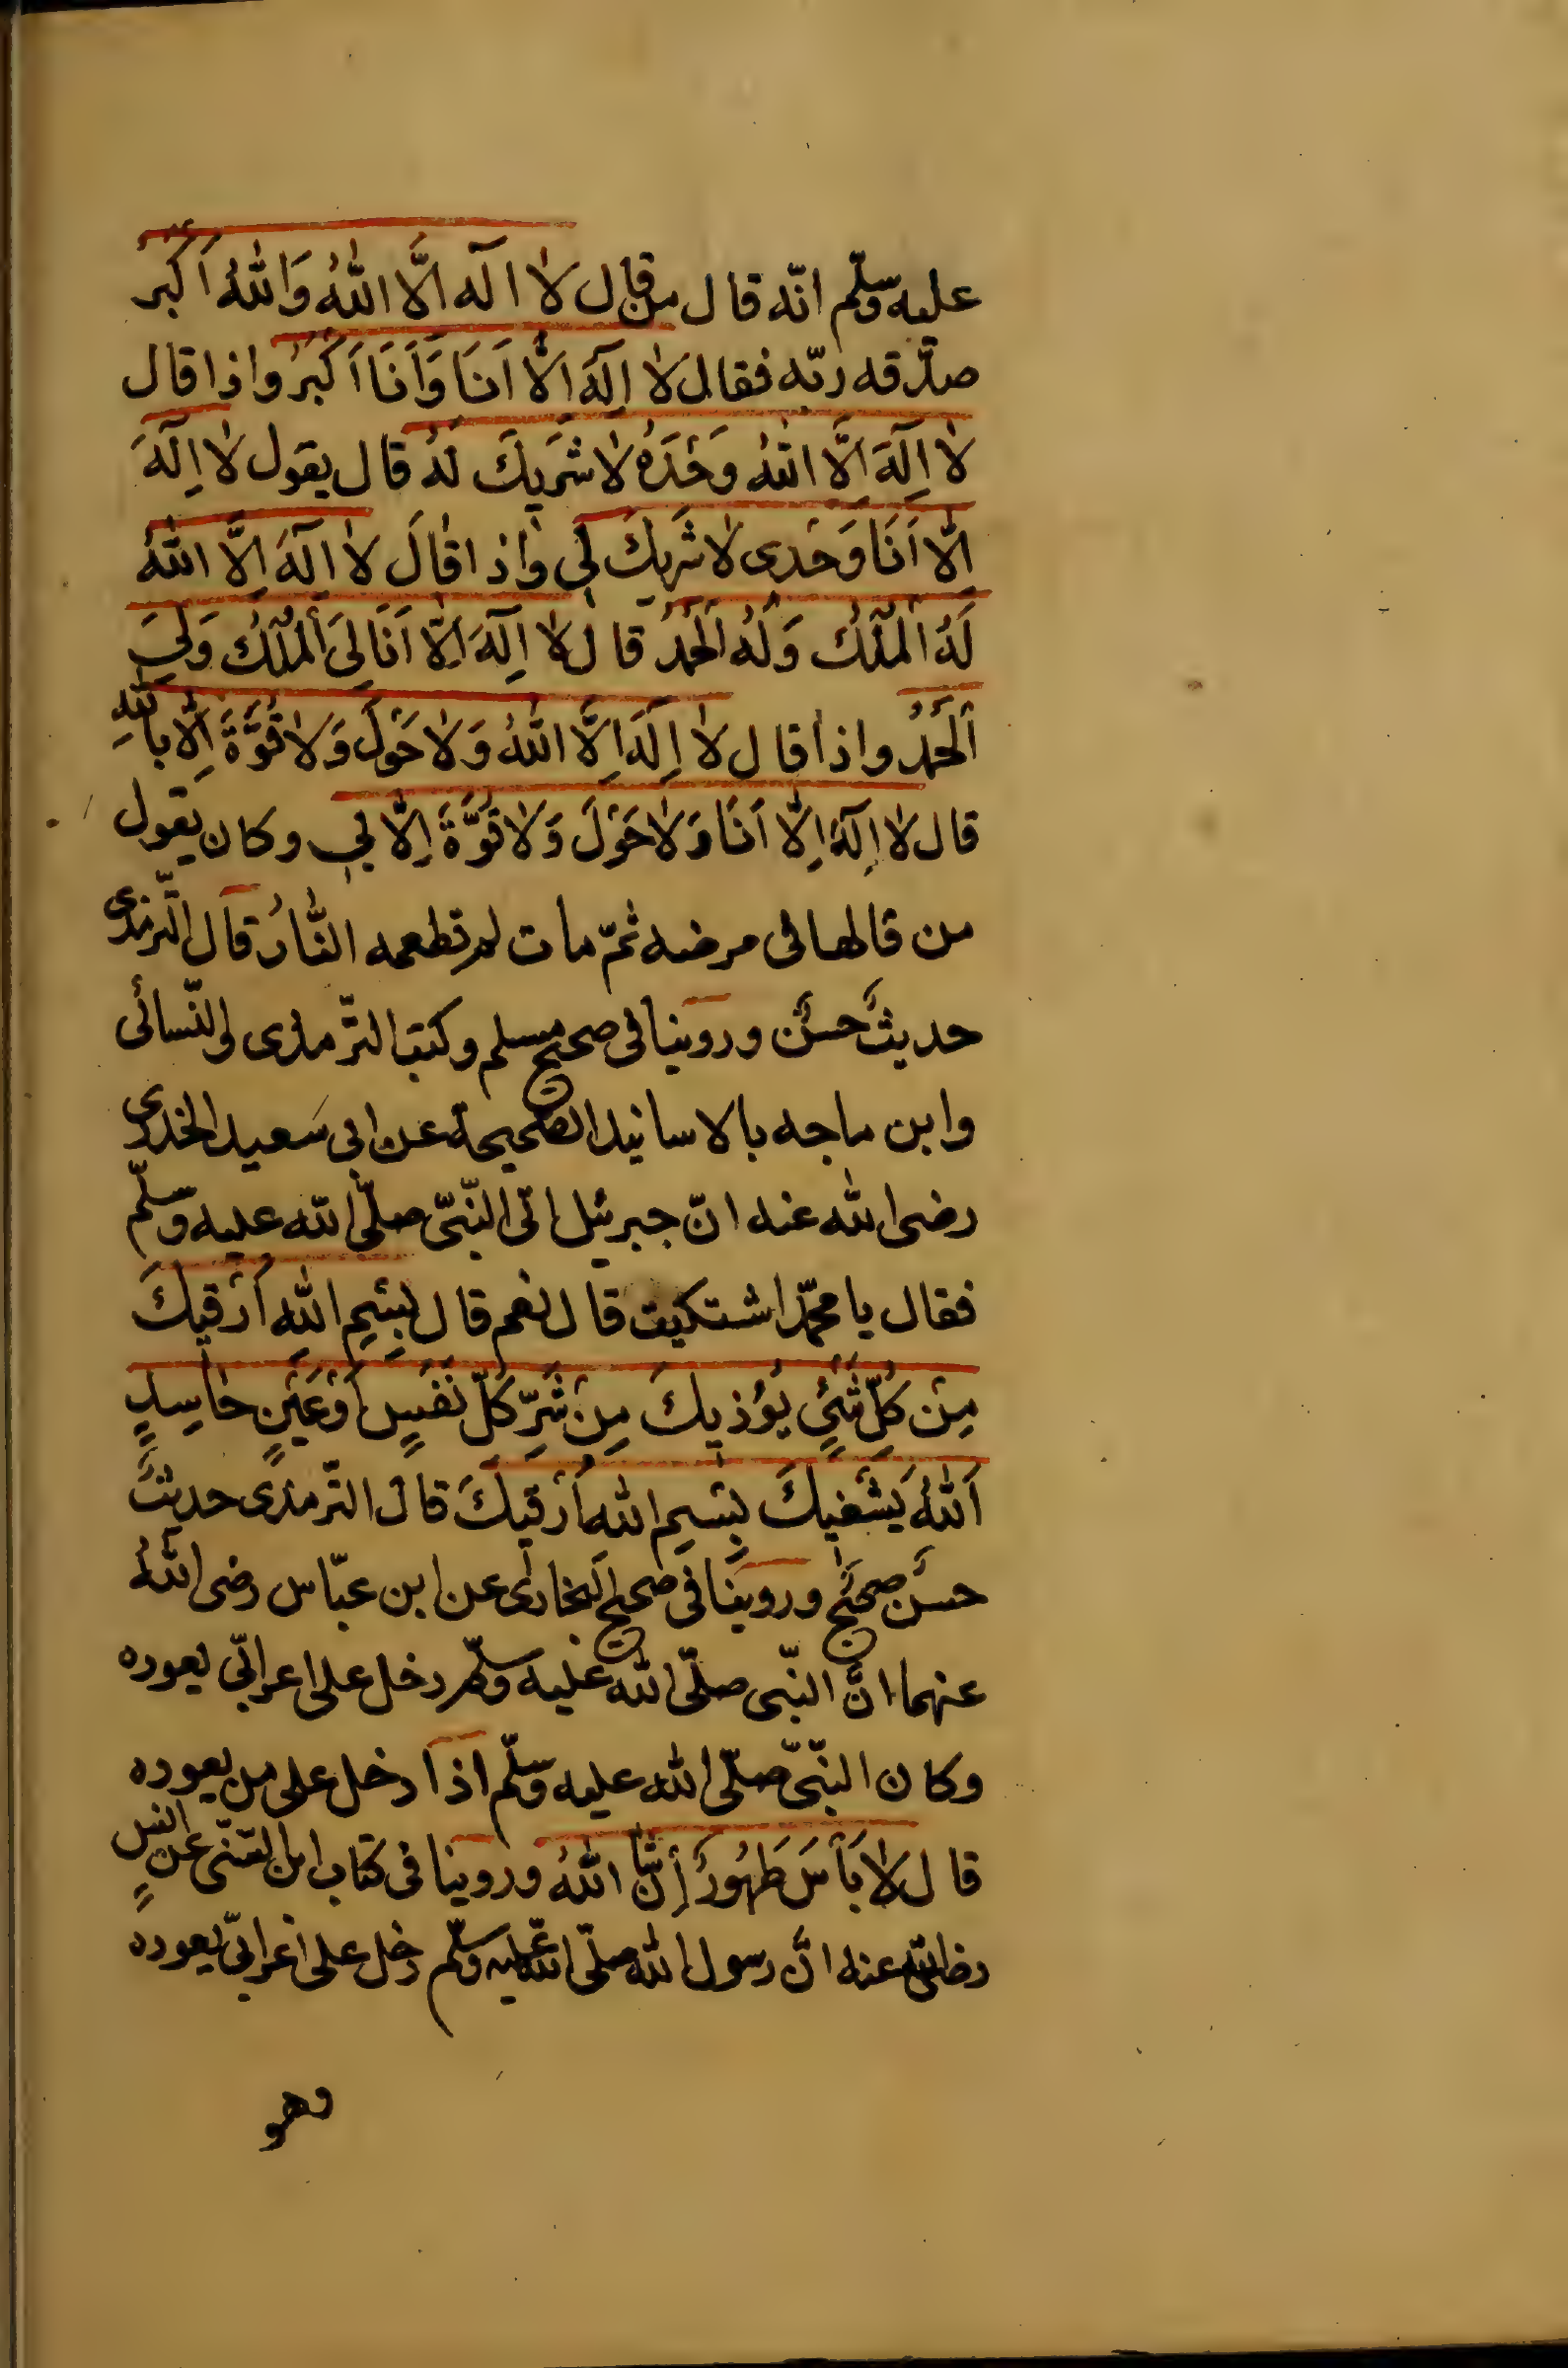 عليه وسلّم انّه قال من قال لا اله الَّا اللّٰهُ وَاللّٰهُ اَكْبَرُ
صدّقه ربّه فقال لا اِلٰهَ اِلَّا اَنَا وَاَنَا اَكْبَرُ واذا قال
لا اِلٰهَ اِلَّا اللّٰهُ وَحْدَهُ لا شَرِيكَ لَهُ قال يقول لا اِلٰهَ
اِلَّا اَنَا وَحْدى لا شَرِيكَ لى واذا قالَ لا اِلٰهَ اِلَّا اللّٰهُ
لَهُ الْمُلْكُ وَلَهُ الْحَمْدُ قال لا اِلٰهَ اِلَّا اَنَا لِىَ الْمُلْكُ وَلِىَ
اَلْحَمْدُ واذا قال لا اِلٰهَ اِلَّا اللّٰهُ وَلا حَوْلَ وَلا قُوَّةَ اِلَّا بِاللّٰهِ
قال لا اِلٰهَ اِلَّا اَنَا وَلا حَوْلَ وَلا قُوَّةَ اِلَّا بى وكان يقول
من قالها فى مرضه ثمّ مات لم تطعمه النَّارُ قال التّرمذى
حديثٌ حسنٌ وروينا فى صحيح مسلم وكتب التّرمذى والنّسائى
وابن ماجه بالاسانيد الصّحيحة عن ابى سَعيد الخدرى
رضى اللّٰه عنه انّ جبرئيل اتى النّبىّ صلّى اللّٰه عليه وسلّم
فقال يا محمّد اشتكيت قال نعم قال بِسْمِ اللّٰهِ اَرْقيكَ
مِنْ كُلِّ شَىْءٍ يُوْذيكَ مِنْ شَرِّ كُلِّ نَفْسٍ اَوْ عَيْنٍ حاسِدٍ
اَللّٰهُ يَشْفيكَ بِسْمِ اللّٰهِ اَرْقيكَ قال التّرمذى حديثٌ
حسنٌ صحيحٌ وروينا فى صحيح البخارى عن ابن عبّاس رضى اللّٰهُ
عنهما انَّ النّبى صلّى اللّٰه عليه وسلّم دخل على اعرابىّ يعوده
وكان النّبىّ صلّى اللّٰه عليه وسلّم اذا دخل على من يعوده
قال لا بَأْسَ طَهُورٌ اِنْ شَا اللّٰهُ وروينا فى كتاب ابن السّنّى عن انسٍ
رضى اللّٰه عنه انَّ رسول اللّٰه صلّى اللّٰه عليه وسلّم دخل على اعرابىّ يعوده
وهو